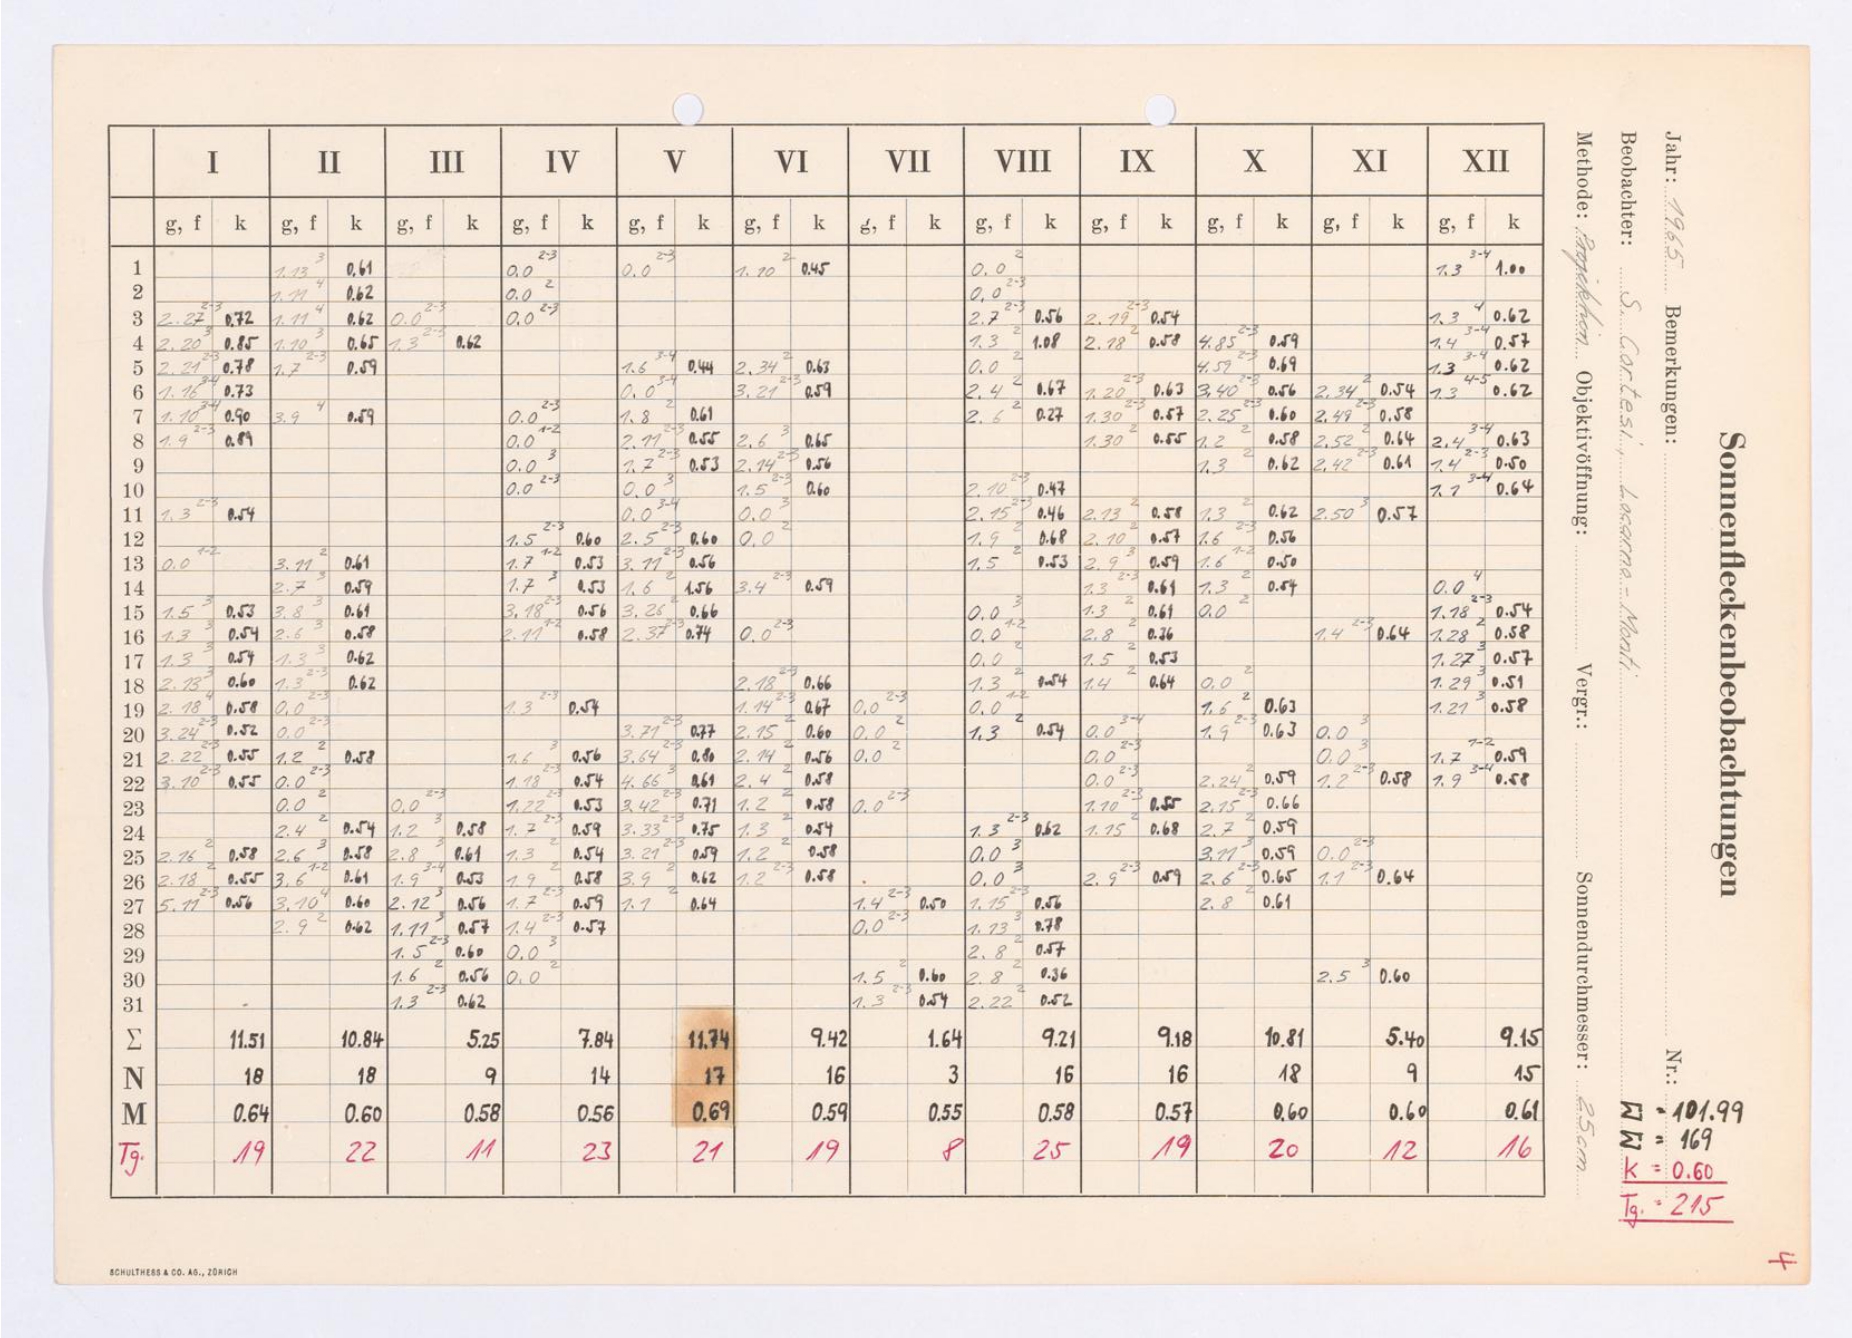 I II III IV V VI VII VIII IX X XI XII
g, f k g, f k g, f k g, f k g, f k g, f k g, f k g, f k g, f k g, f k g, f k g, f k
1 1.13 3 0.61 0.0 2-3 0.0 2-3 1.10 2 0.45 0.0 2 1.3 3-4 1.00
2 1.11 4 0.62 0.0 2 0.0 2-3
3 2.27 2-3 0.72 1.11 4 0.62 0.0 2-3 0.0 2-3 2.7 2-3 0.56 2.19 2-3 0.54 1.3 4 0.62
4 2.20 3 0.85 1.10 3 0.65 1.3 2-3 0.62 1.3 2 1.08 2.18 2 0.58 4.85 2-3 0.59 1.4 3-4 0.57
5 2.21 2-3 0.78 1.7 2-3 0.59 1.6 3-4 0.44 2.34 2 0.63 0.0 2 4.59 2-3 0.69 1.3 3-4 0.62
6 1.16 3-4 0.73 0.0 3-4 3.21 2-3 0.59 2.4 2 0.67 1.20 2-3 0.63 3.40 2-3 0.56 2.34 2 0.54 1.3 4-5 0.62
7 1.10 3-4 0.90 3.9 4 0.59 0.0 2-3 1.8 2 0.61 2.6 2 0.27 1.30 2-3 0.57 2.25 2-3 0.60 2.49 2-3 0.58
8 1.9 2-3 0.89 0.0 1-2 2.11 2-3 0.55 2.6 3 0.65 1.30 2 0.55 1.2 2 0.58 2.52 2 0.64 2.4 3-4 0.63
9 0.0 3 1.7 2-3 0.53 2.14 2-3 0.56 1.3 2 0.62 2.42 2-3 0.61 1.4 2-3 0.50
10 0.0 2-3 0.0 3 1.5 2-3 0.60 2.10 2-3 0.47 1.1 3-4 0.64
11 1.3 2-3 0.54 0.0 3-4 0.0 3 2.15 2-3 0.46 2.13 2 0.58 1.3 2 0.62 2.50 3 0.57
12 1.5 2-3 0.60 2.5 2-3 0.60 0.0 2 1.9 2 0.68 2.10 2 0.57 1.6 2-3 0.56
13 0.0 1-2 3.11 2 0.61 1.7 1-2 0.53 3.11 2-3 0.56 1.5 2 0.53 2.9 3 0.59 1.6 1-2 0.50
14 2.7 3 0.59 1.7 3 0.53 1.6 2 1.56 3.4 2-3 0.59 1.3 2-3 0.61 1.3 2 0.54 0.0 4
15 1.5 3 0.53 3.8 3 0.61 3.18 2-3 0.56 3.26 2 0.66 0.0 3 1.3 2 0.61 0.0 2 1.18 2-3 0.54
16 1.3 3 0.54 2.6 3 0.58 2.11 1-2 0.58 2.37 2-3 0.74 0.0 2-3 0.0 1-2 2.8 2 0.36 1.4 2-3 0.64 1.28 2 0.58
17 1.3 3 0.54 1.3 3 0.62 0.0 2 1.5 2 0.53 1.27 3 0.57
18 2.13 3 0.60 1.3 2-3 0.62 2.18 2-3 0.66 1.3 2 0.54 1.4 2 0.64 0.0 2 1.29 3 0.51
19 2.18 4 0.58 0.0 2-3 1.3 2-3 0.54 1.14 2-3 0.67 0.0 2-3 0.0 1-2 1.6 2 0.63 1.21 3 0.58
20 3.24 2-3 0.52 0.0 2-3 3.71 2-3 0.77 2.15 2 0.60 0.0 2 1.3 2 0.54 0.0 3-4 1.9 2-3 0.63 0.0 3
21 2.22 2-3 0.55 1.2 2 0.58 1.6 3 0.56 3.64 2-3 0.80 2.14 2 0.56 0.0 2 0.0 2-3 0.0 3 1.7 1-2 0.59
22 3.10 2-3 0.55 0.0 2-3 1.18 2-3 0.54 4.66 3 0.61 2.4 2 0.58 0.0 2-3 2.24 2 0.59 1.2 2-3 0.58 1.9 3-4 0.58
23 0.0 2 0.0 2-3 1.22 2-3 0.53 3.42 2-3 0.71 1.2 2 0.58 0.0 2-3 1.10 2-3 0.55 2.15 2 0.66
24 2.4 2 0.54 1.2 3 0.58 1.7 2-3 0.59 3.33 2-3 0.75 1.3 2 0.54 1.3 2-3 0.62 1.15 2 0.68 2.7 2 0.59
25 2.16 2 0.58 2.6 3 0.58 2.8 3 0.61 1.3 2 0.54 3.21 2-3 0.59 1.2 2 0.58 0.0 3 3.11 3 0.59 0.0 2-3
26 2.18 2 0.55 3.6 1-2 0.61 1.9 3-4 0.53 1.9 2 0.58 3.9 2 0.62 1.2 2-3 0.58 0.0 3 2.9 2-3 0.59 2.6 2-3 0.65 1.1 2 0.64
27 5.11 2-3 0.56 3.10 4 0.60 2.12 3 0.56 1.7 2-3 0.59 1.1 2 0.64 1.4 2-3 0.50 1.15 2-3 0.56 2.8 2 0.61
28 2.9 2 0.62 1.11 3 0.57 1.4 2-3 0.57 0.0 2-3 1.13 2 0.78
29 1.5 2-3 0.60 0.0 3 2.8 2 0.57
30 1.6 2 0.56 0.0 2 1.5 2 0.60 2.8 2 0.36 2.5 3 0.60
31 1.3 2-3 0.62 1.3 2-3 0.54 2.22 2 0.52
Σ 11.51 10.84 5.25 7.84 11.74 9.42 1.64 9.21 9.18 10.81 5.40 9.15
N 18 18 9 14 17 16 3 16 16 18 9 15
M 0.64 0.60 0.58 0.56 0.69 0.59 0.55 0.58 0.57 0.60 0.60 0.61
Tg. 19 22 11 23 21 19 8 25 19 20 12 16
Sonnenfleckenbeobachtungen
Jahr: 1965 Bemerkungen: Nr.:
Beobachter: S. Cortesi, Locarno-Monti
Methode: Projektion Objektivöffnung: Vergr.: Sonnendurchmesser: 25 cm
= 101.99
= 169
K = 0.60
Tg. = 215
SCHULTHESS & CO. AG., ZÜRICH